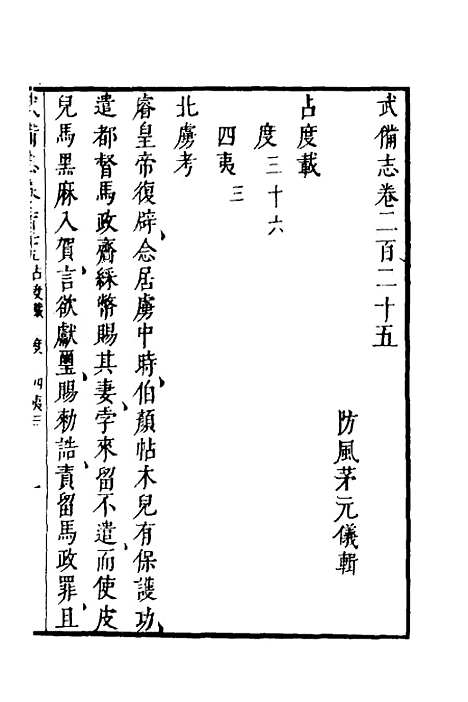 武備志卷二百二十五
防風茅元儀輯
占度載
度三十六
四夷三
北虜考
睿皇帝復辟念居虜中時伯顏帖木兒有保護功
遣都督馬政齎綵幣賜其妻孛來留不遣而使皮
兒馬黑麻入賀言欲獻璽賜勅誥責留馬政罪且
武備志卷二百廿五占度載 度 四夷三 一